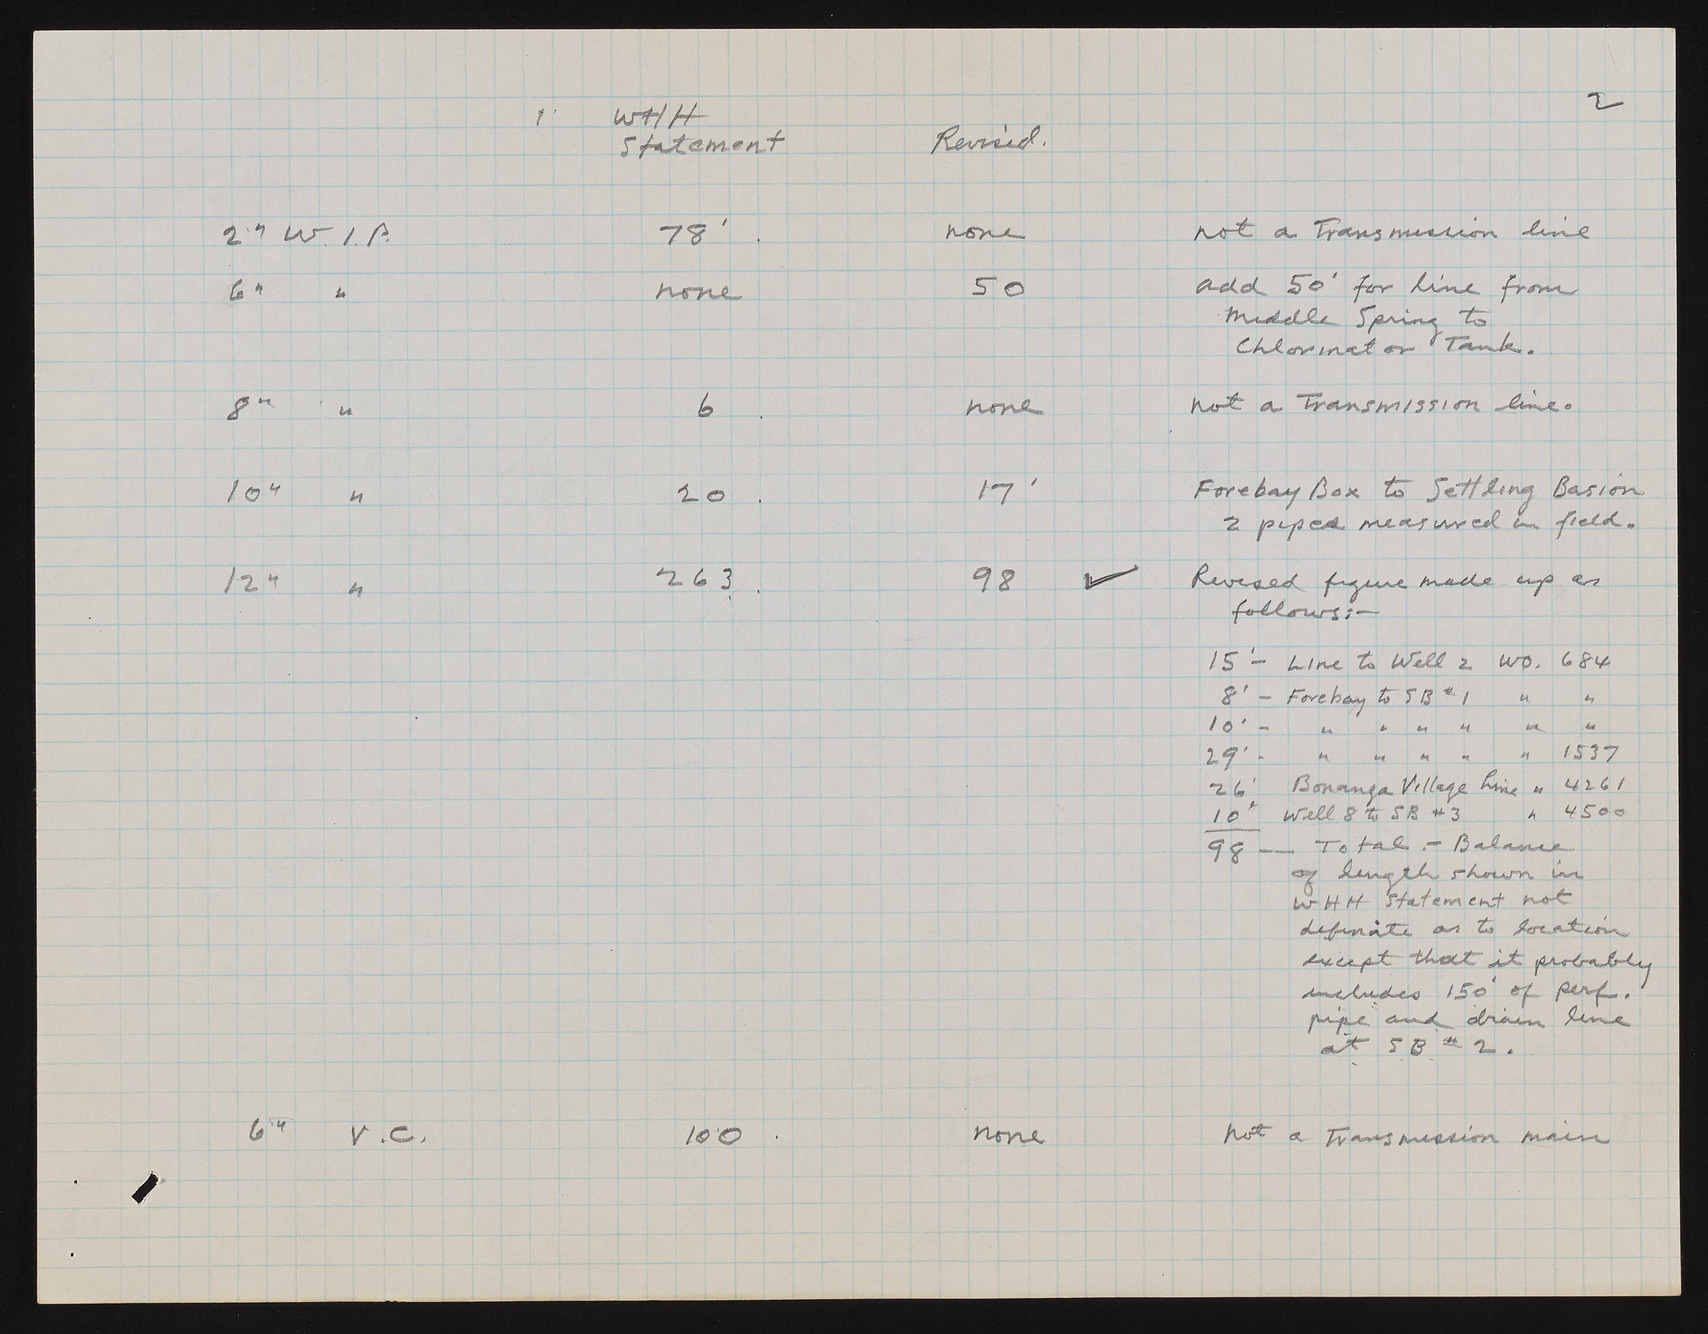 2
WHH
Statement Revised.
2" W.I.P. 78' . none not a Transmission line
6" " none 50 add 50' for line from
Middle Spring to
Chlorinator Tank.
8" " 6 . none not a Transmission line.
10" " 20 . 17' Forebay Box to Settling Basion
2 pipes measured in field.
12" " 263 . 98 ✓ Revised figure made up as
follows:-
15' - Line to Well 2 WO. 684
8' - Forebay to SB #1 " "
10' - " " " " " "
29' - " " " " " 1537
26' Bonanga Village Line " 4261
10' Well 8 to SB #3 " 4500
98 — Total - Balance
of length shown in
WHH Statement not
definate as to location
except that it probably
includes 150' of perf.
pipe and drain line
at SB #2.
6" V.C. 100 . none not a Transmission main